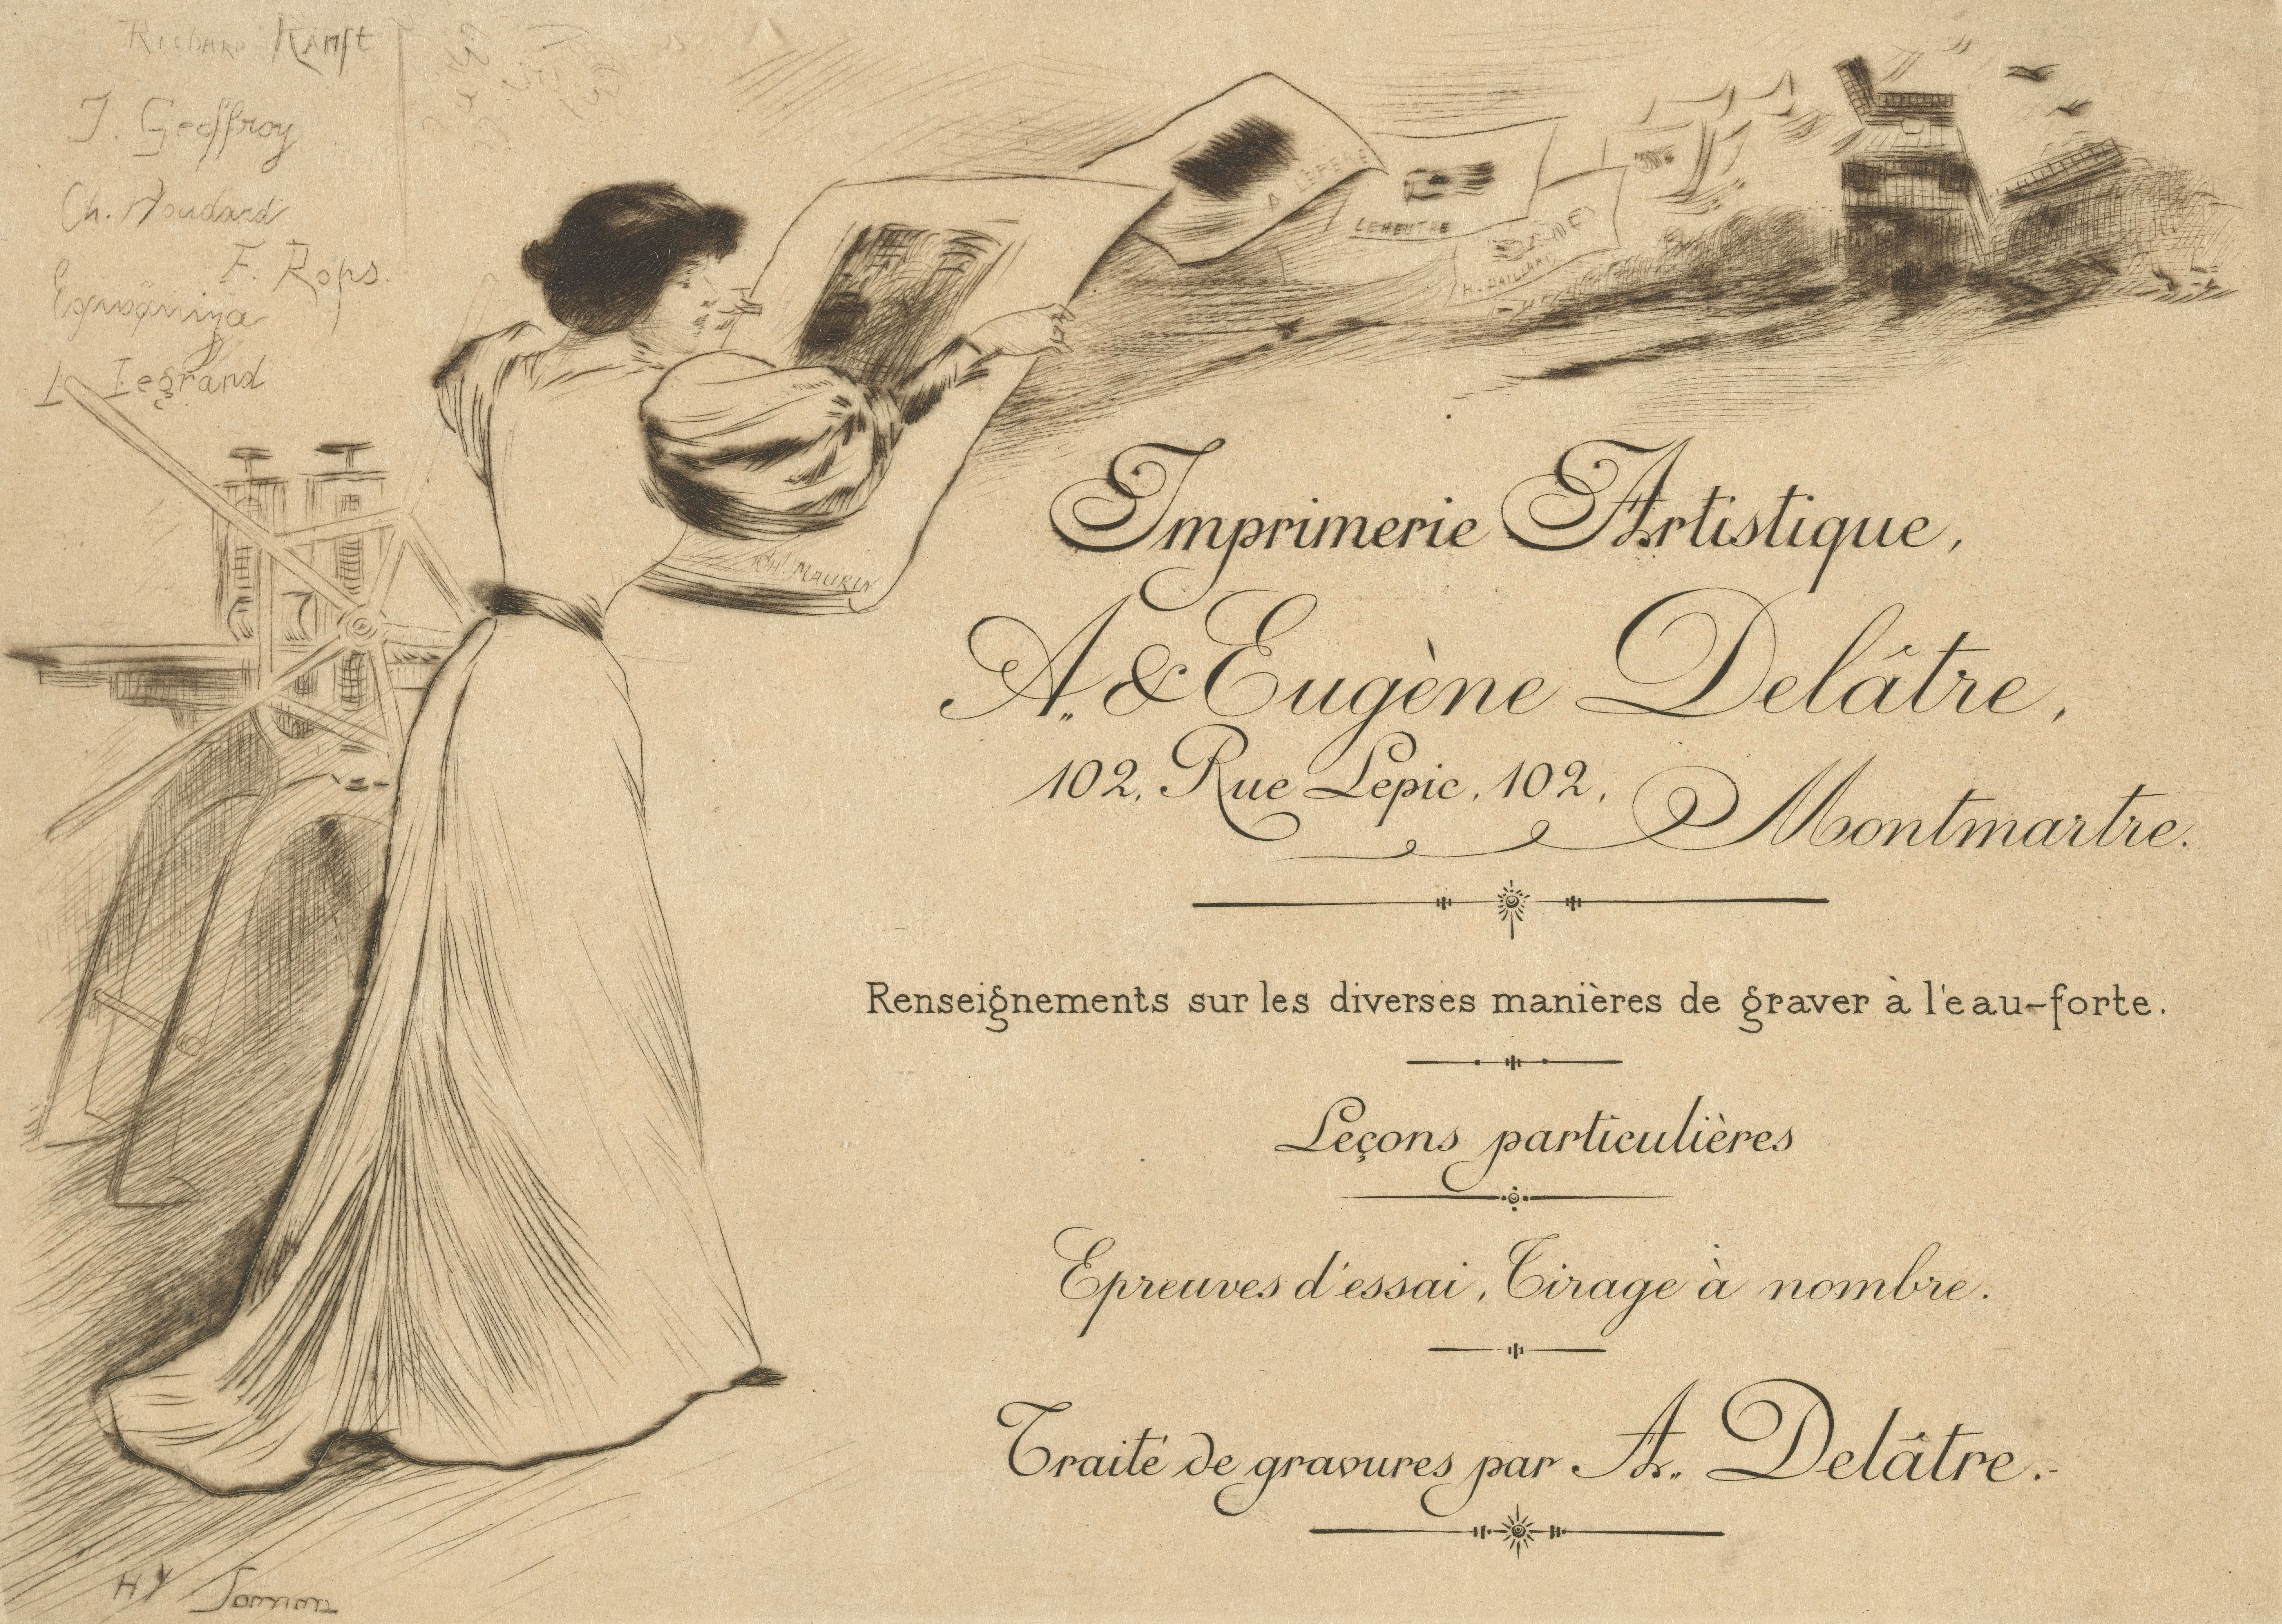 Richard Ranft
J. Geoffroy
Ch. Houdard
F. Rops.
L. Legrand
A LEPERE
LEHEUTRE
H. PAILLARD
CH. MAURIN
Imprimerie Artistique,
A. & Eugène Delâtre,
102, Rue Lepic, 102,
Montmartre.
Renseignements sur les diverses manières de graver à l'eau-forte.
Leçons particulières
Epreuves d'essai, Tirage à nombre.
Traité de gravures par A. Delâtre.
Hy Somm